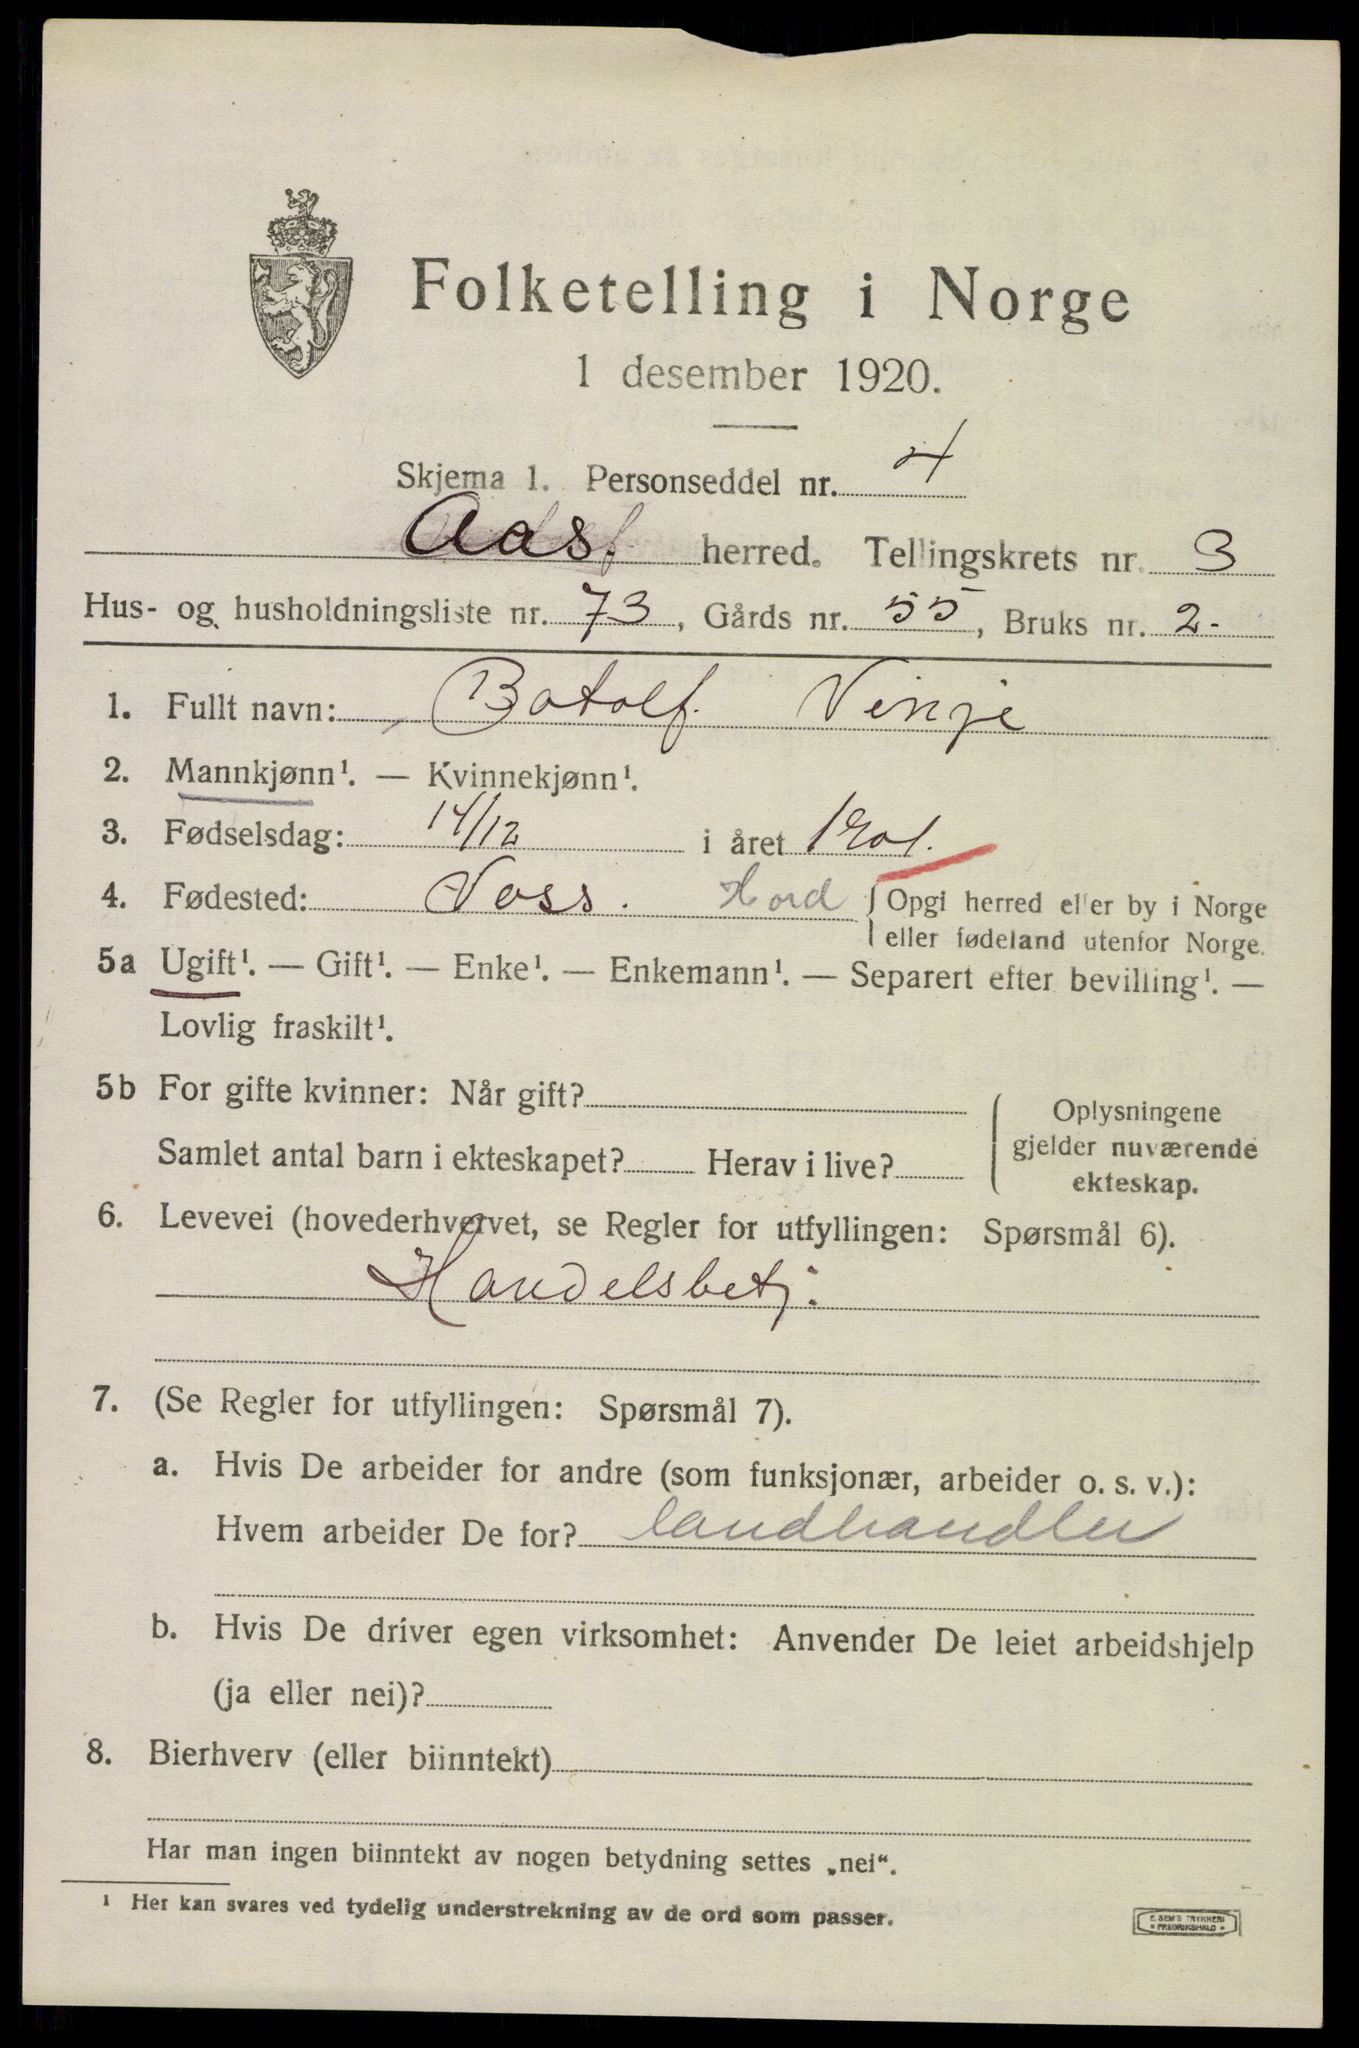 Folketelling i Norge
1 desember 1920.
Skjema 1. Personseddel nr. 4
Aas herred. Tellingskrets nr. 3
Hus- og husholdningsliste nr. 73, Gårds nr. 55, Bruks nr. 2.
1. Fullt navn: Botolf Vinje
2. Mannkjønn¹. — Kvinnekjønn¹.
3. Fødselsdag: 14/12 i året 1901.
4. Fødested: Voss. Hord { Opgi herred eller by i Norge
eller fødeland utenfor Norge.
5a Ugift¹. — Gift¹. — Enke¹. — Enkemann¹. — Separert efter bevilling¹. —
Lovlig fraskilt¹.
5b For gifte kvinner: Når gift?
Samlet antal barn i ekteskapet? Herav i live?
{ Oplysningene
gjelder nuværende
ekteskap.
6. Levevei (hovederhvervet, se Regler for utfyllingen: Spørsmål 6).
Handelsbetj.
7. (Se Regler for utfyllingen: Spørsmål 7).
a. Hvis De arbeider for andre (som funksjonær, arbeider o. s. v.):
Hvem arbeider De for? landhandler
b. Hvis De driver egen virksomhet: Anvender De leiet arbeidshjelp
(ja eller nei)?
8. Bierhverv (eller biinntekt)
Har man ingen biinntekt av nogen betydning settes „nei“.
¹ Her kan svares ved tydelig understrekning av de ord som passer.
E. SEM'S TRYKKERI
• FREDRIKSHALD •